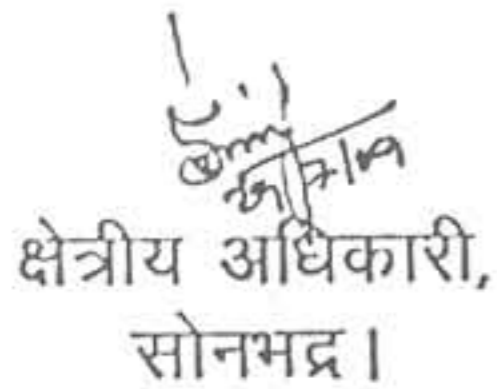 क्षेत्रीय अधिकारी,
सोनभद्र।